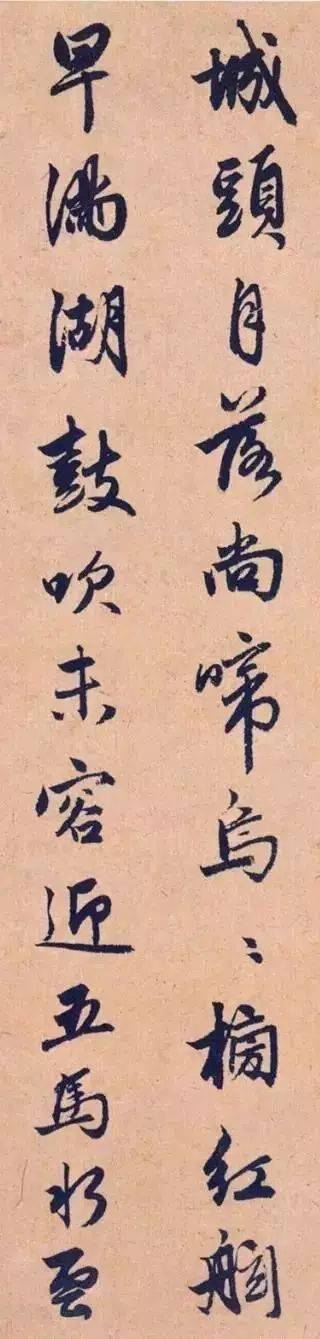 城頭月落尚啼烏〻榜紅舷
早滿湖鼓吹未容迎五馬水雲